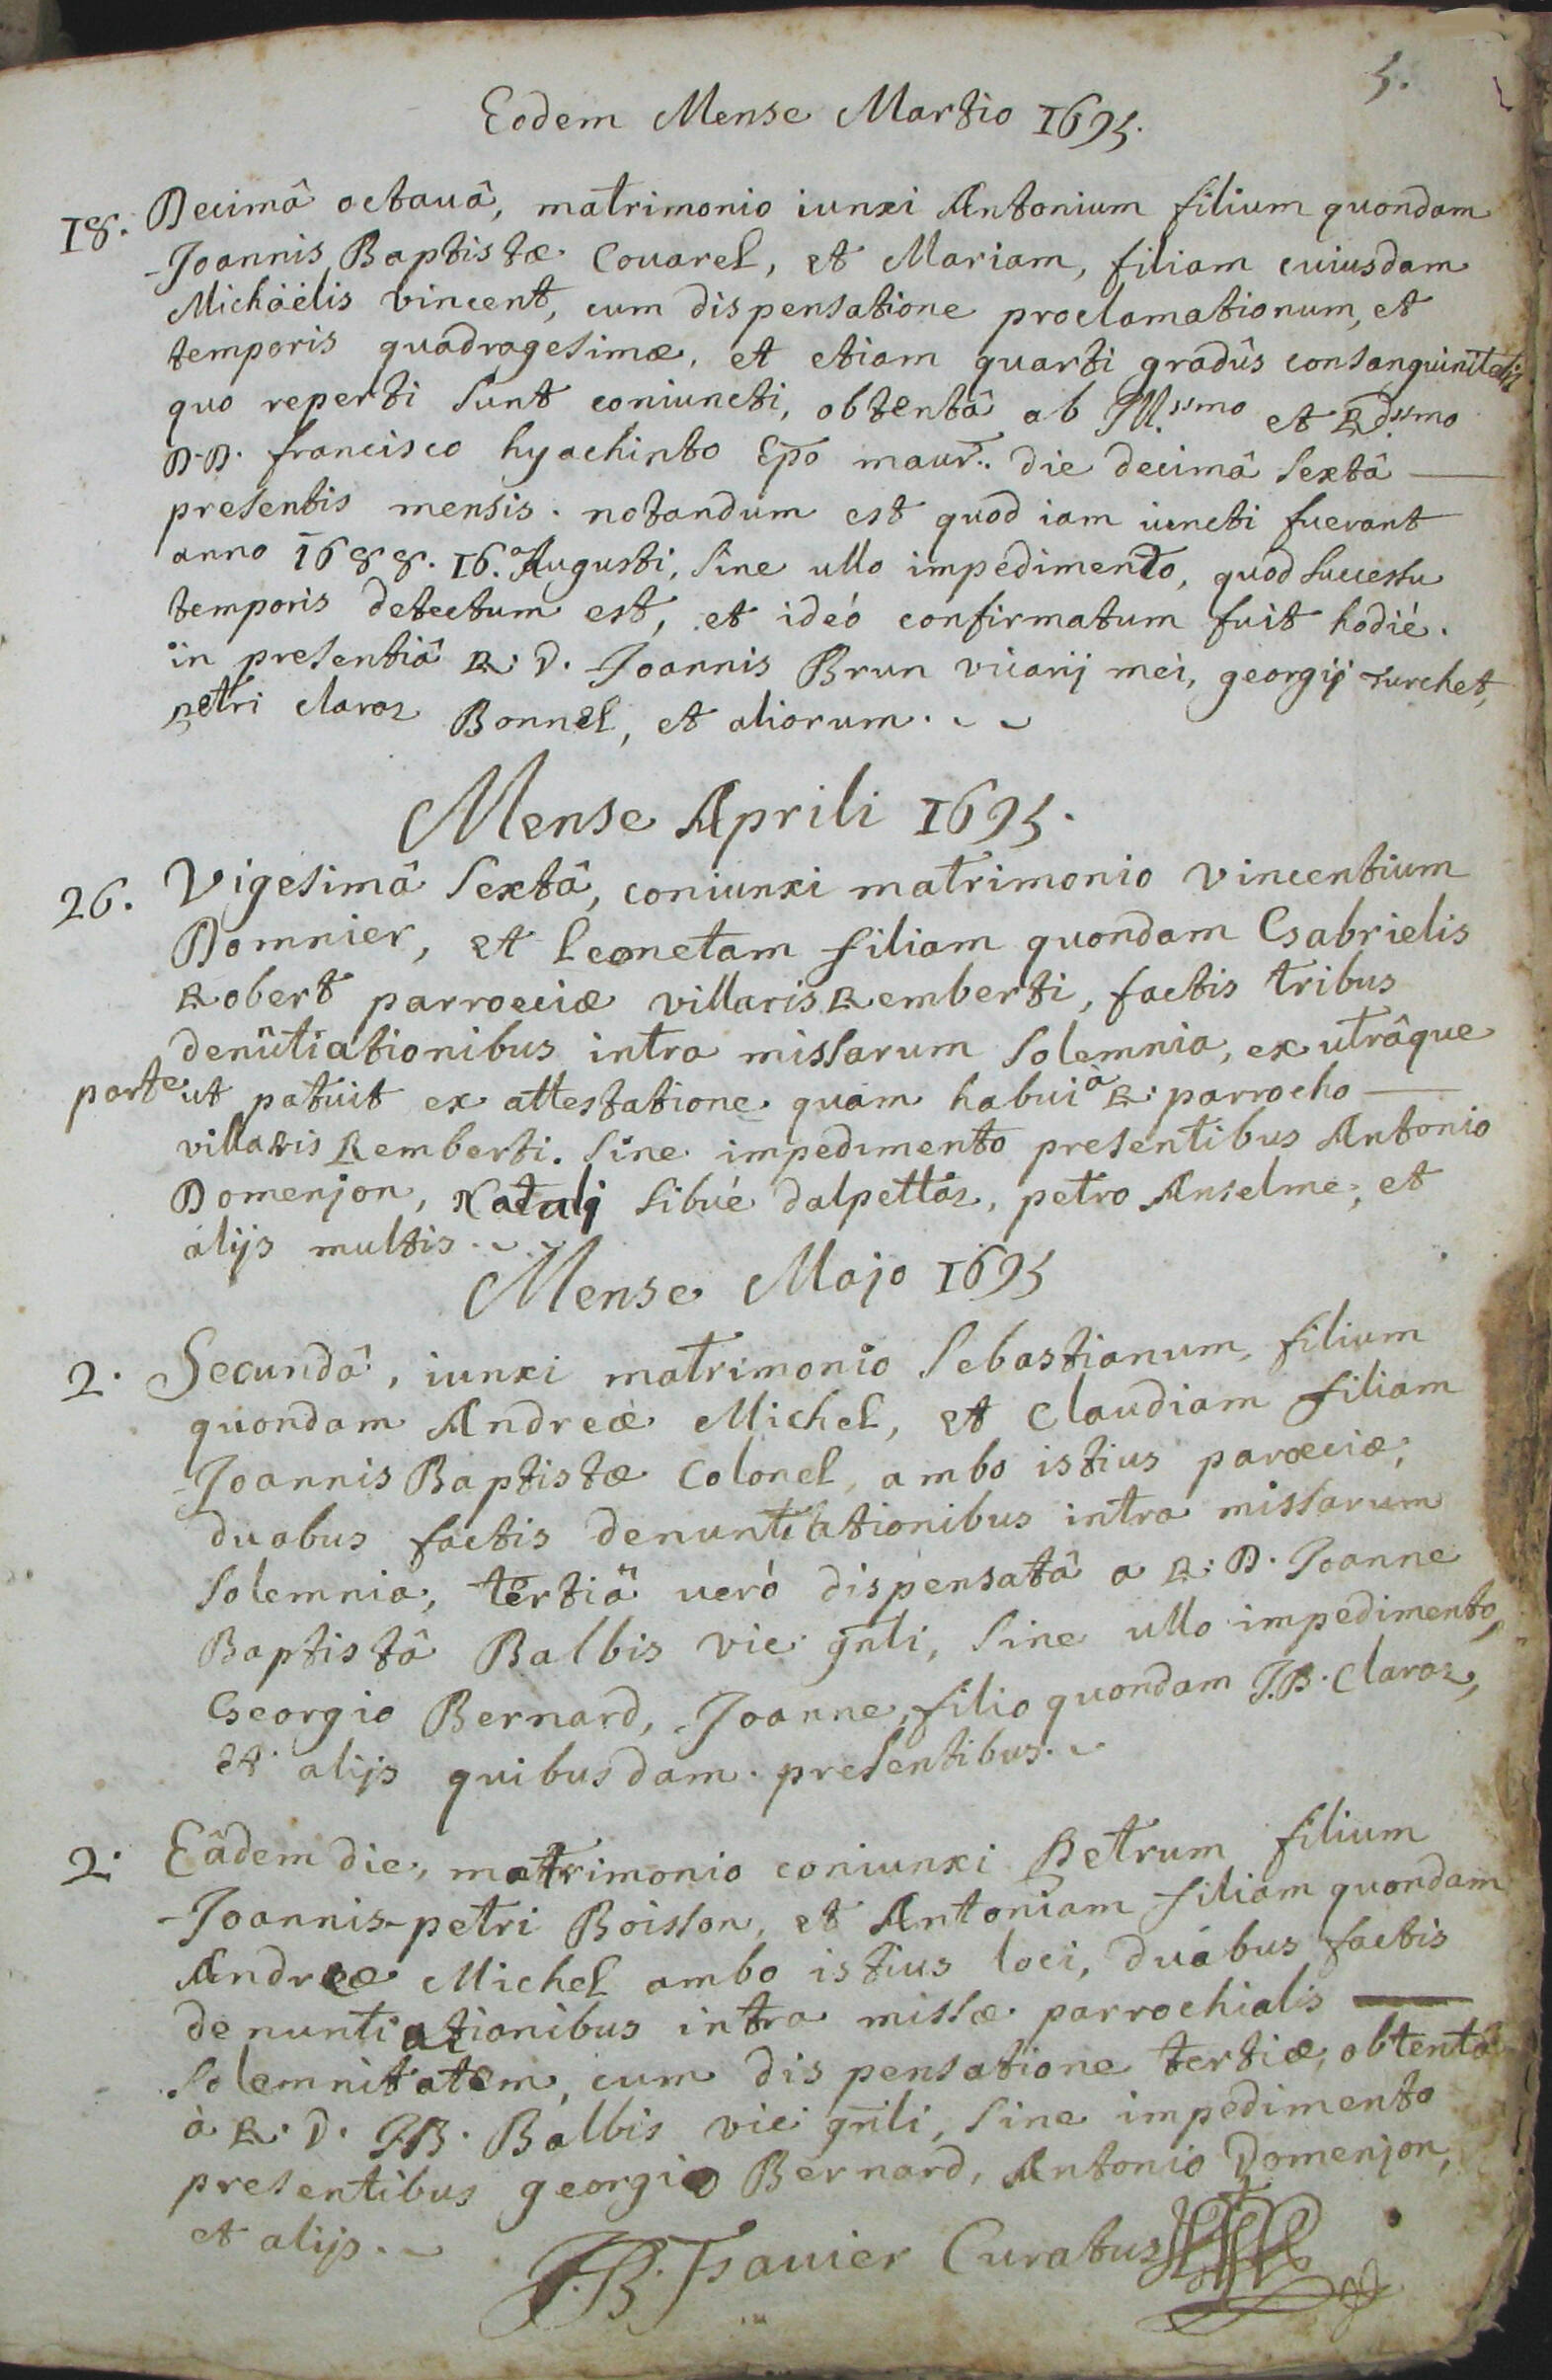 5.
Eodem Mense Martio 1695.
18. Decimâ octauâ, matrimonio iunxi Antonium filium quondam
Joannis Baptistæ Couarel, et Mariam, filiam cuiusdam
Michäelis vincent, cum dispensatione proclamationum, et
temporis quadragesimæ, et etiam quarti gradûs consanguinitatis
quo reperti sunt coniuncti, obtentâ ab Ill.ssmo et Rd.ssmo
D.D. francisco hyachinto Epõ maur.. die decimâ sextâ —
presentis mensis. notandum est quod iam iuncti fuerant
anno 1688. 16. Augusti, sine ullo impedimento, quod successu
temporis detectum est, et ideó confirmatum fuit hodié.
in presentiâ R. D. Joannis Brun vicarij mei, georgij turchet,
petri claraz Bonnel, et aliorum.
Mense Aprili 1695.
26. Vigesimâ sextâ, coniunxi matrimonio vincentium
Domnier, et Leonetam filiam quondam Gabrielis
Robert parrocciæ villaris Remberti, factis tribus
denũtiationibus intra missarum solemnia, ex utrâque
parte ut patuit ex attestatione quam habui à R. parrocho —
villaris Remberti. sine impedimento presentibus Antonio
Domenjon, Natali sibué dalpettaz, petro Anselme, et
alijs multis.
Mense Majo 1695
2. Secundâ, iunxi matrimonio Sebastianum, filium
quondam Andreæ Michel, et Claudiam filiam
Joannis Baptistæ Colonel, ambo istius parœciæ,
duabus factis denuntiationibus intra missarum
solemnia, tertiâ ueró dispensatâ a R. D. Joanne
Baptistâ Balbis vic. gñli, sine ullo impedimento,
Georgio Bernard, Joanne, filio quondam J.B. Claraz,
et alijs quibusdam presentibus.
2. Eâdem die, matrimonio coniunxi Petrum filium
Joannis-petri Boisson, et Antoniam filiam quondam
Andreæ Michel ambo istius loci, duabus factis
denuntiationibus intra missæ parrochialis —
solemnitatem, cum dispensatione tertiæ, obtentâ
à R. D. J.B. Balbis vic. gñli, sine impedimento
presentibus georgio Bernard, Antonio Domenjon,
et alijs.
J.B. Curatus